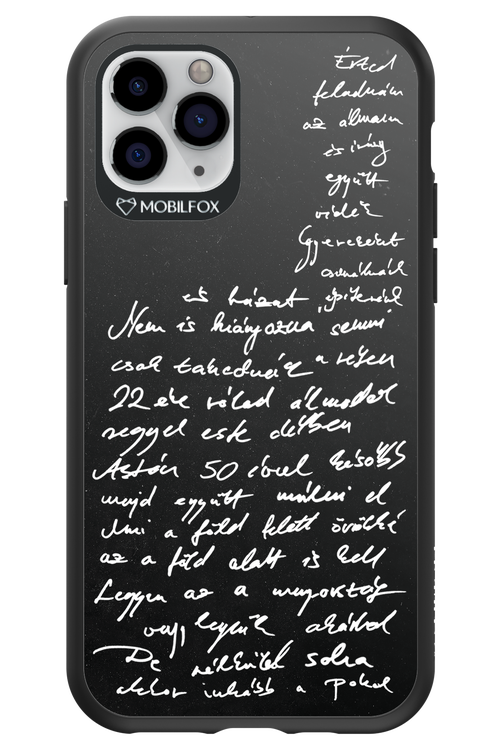 MOBILFOX
Érted
feladnám
az álmam
és így
együtt
vidék
Gyerekeket
csinálnánk
és házat építenénk
Nem is hiányozna semmi
csak takednéz a réten
22 éve rólad álmodok
reggel este délben
Aztán 50 évvel később
majd együtt múlni el
Ami a föld felett örökké
az a föld alatt is kell
Legyen az a mennyország
vagy legyünk akárhol
De nélküled soha
akkor inkább a Pokol